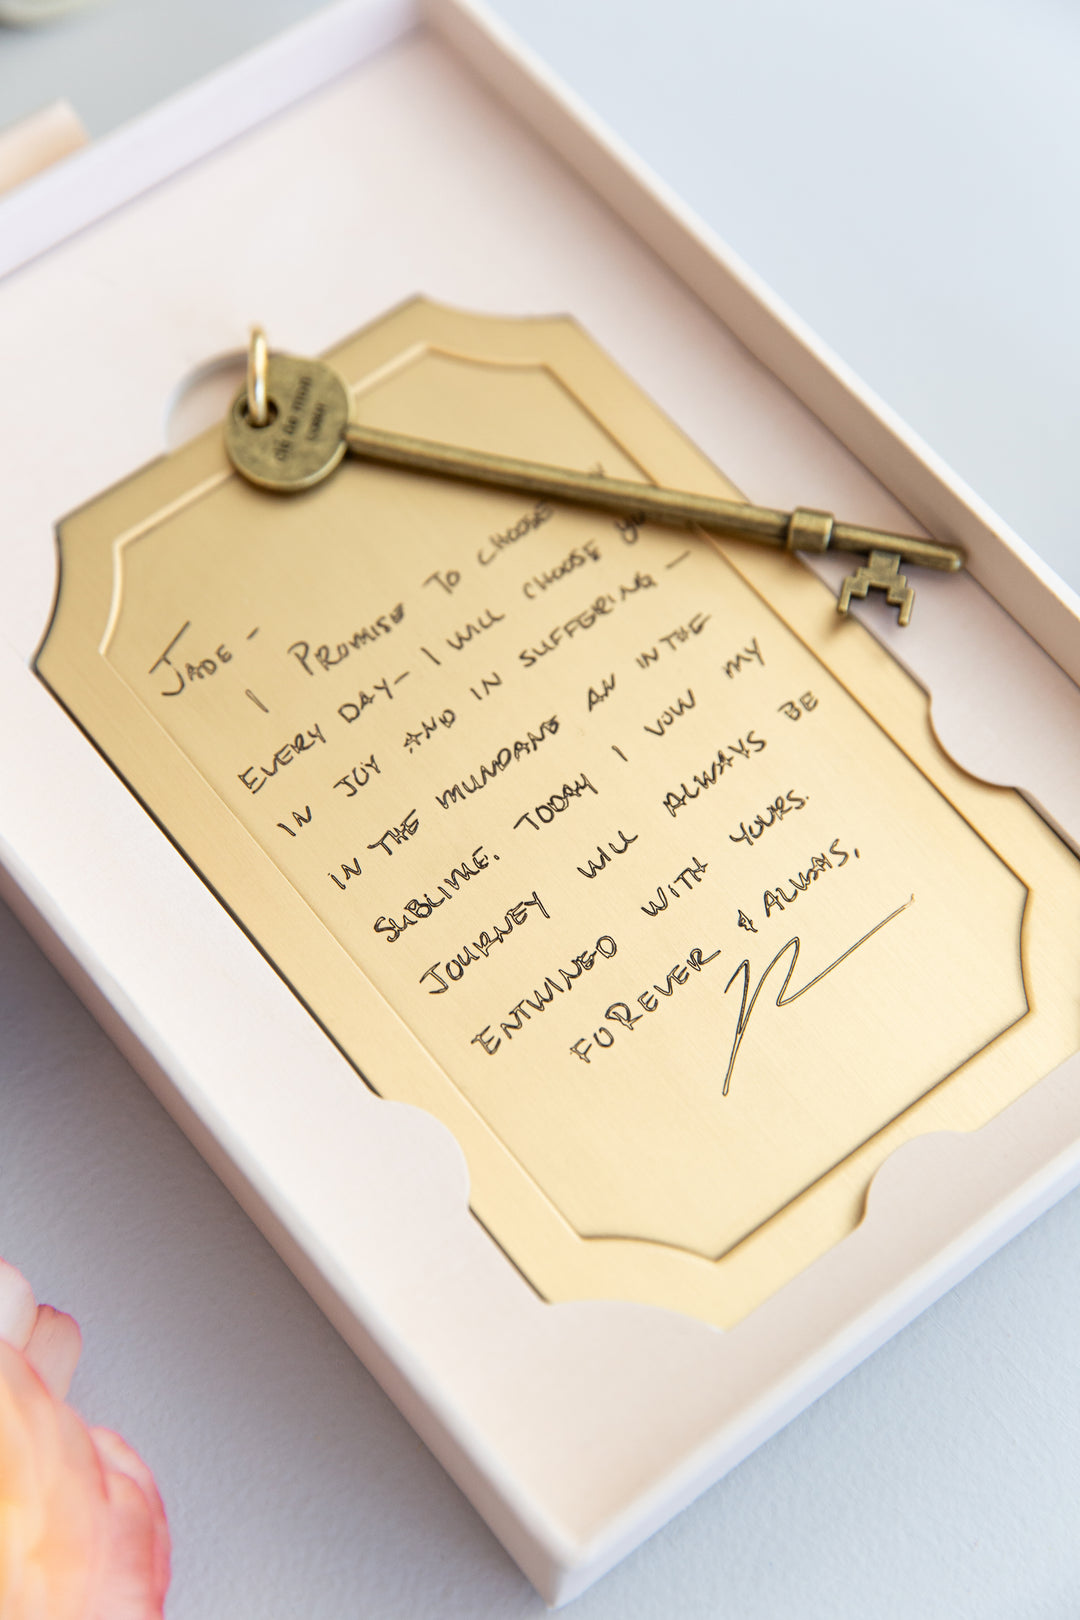 clé de mon
cœur
JADE -
I PROMISE TO CHOOSE
EVERY DAY - I WILL CHOOSE
IN JOY AND IN SUFFERING -
IN THE MUNDANE AN IN THE
SUBLIME. TODAY I VOW MY
JOURNEY WILL ALWAYS BE
ENTWINED WITH YOURS.
FOREVER & ALWAYS,